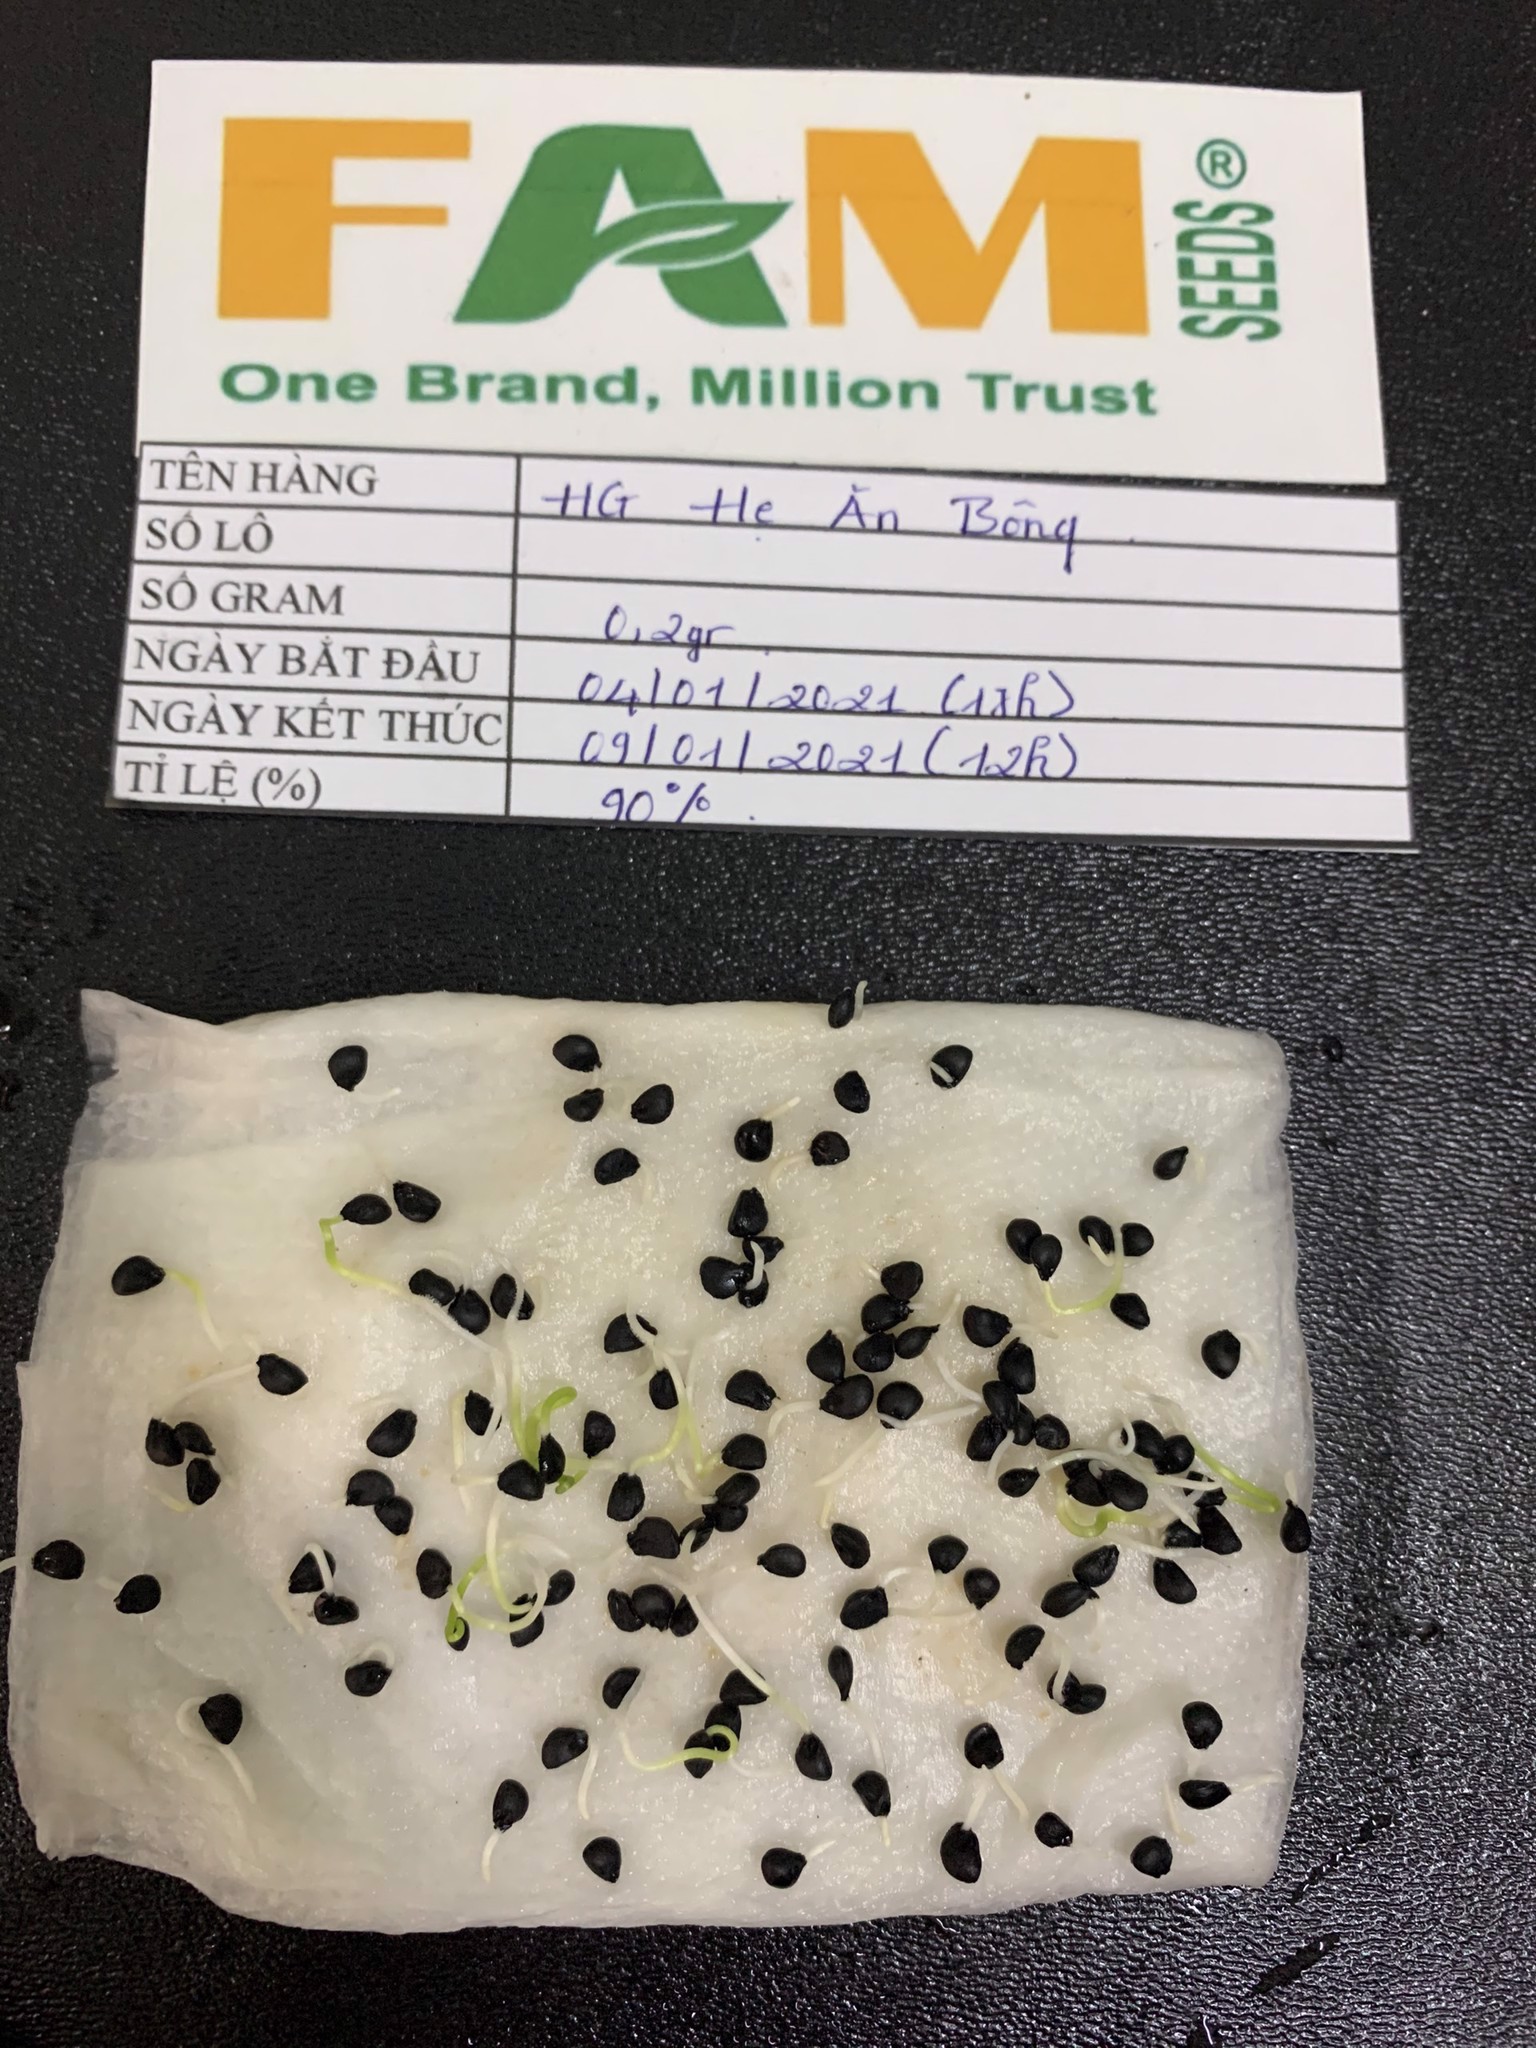 FAM SEEDS®
One Brand, Million Trust
TÊN HÀNG HG Hẹ Ăn Bông
SỐ LÔ
SỐ GRAM 0,2gr
NGÀY BẮT ĐẦU 04/01/2021 (18h)
NGÀY KẾT THÚC 09/01/2021 (12h)
TỈ LỆ (%) 90%